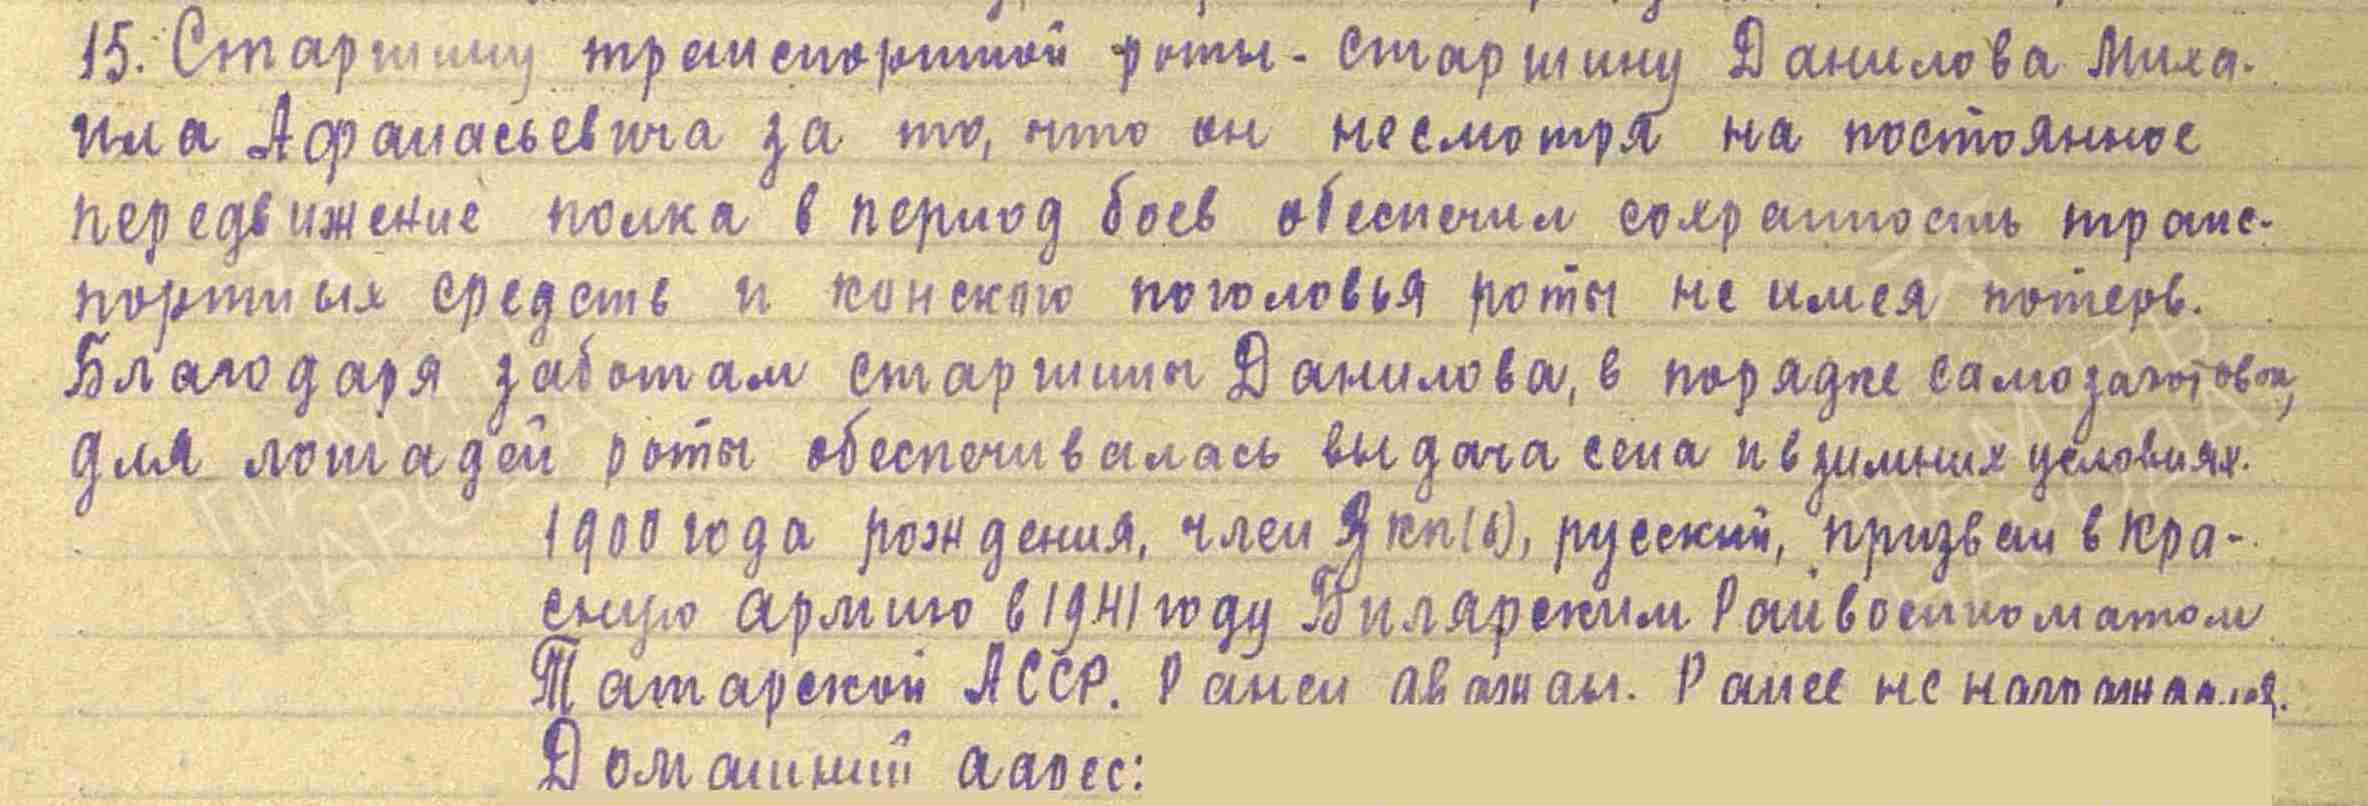 15. Старшину транспортной роты - старшину Данилова Миха-
ила Афанасьевича за то, что он несмотря на постоянное
передвижение полка в период боев обеспечил сохранность транс-
портных средств и конского поголовья роты не имея потерь.
Благодаря заботам старшины Данилова, в порядке самозаготовок,
для лошадей роты обеспечивалась выдача сена и в зимних условиях.
1900 года рождения, член ВКП(б), русский, призван в Кра-
сную армию в 1941 году Билярским Райвоенкоматом
Татарской АССР. Ранен дважды. Ранее не награждался.
Домашний адрес:
ПАМЯТЬ
НАРОДА
ПАМЯТЬ
НАРОДА